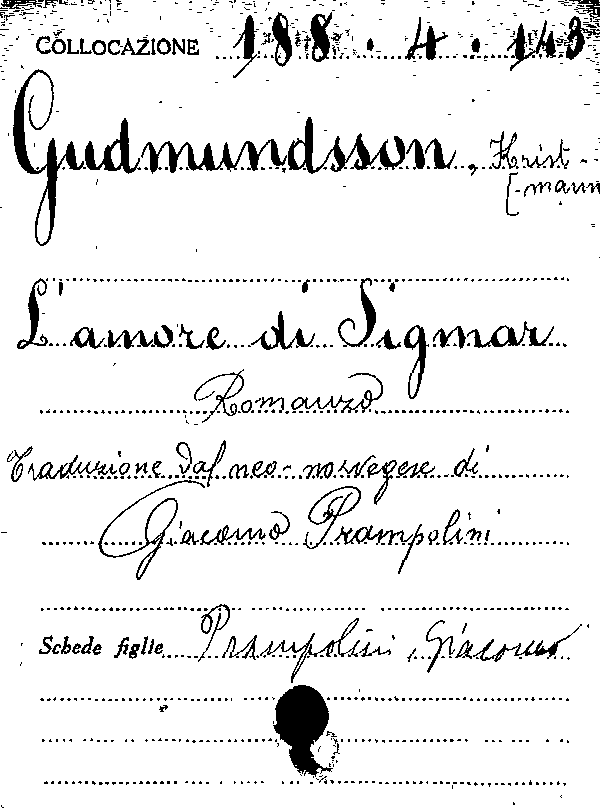 COLLOCAZIONE 188.4.143
Gudmundsson, Krist-
[-mann
L'amore di Sigmar
Romanzo
Traduzione dal neo-norvegese di
Giacomo Prampolini
Schede figlie Prampolini, Giacomo